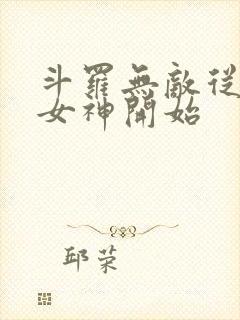 斗羅無敵從
女神開始
邱荣